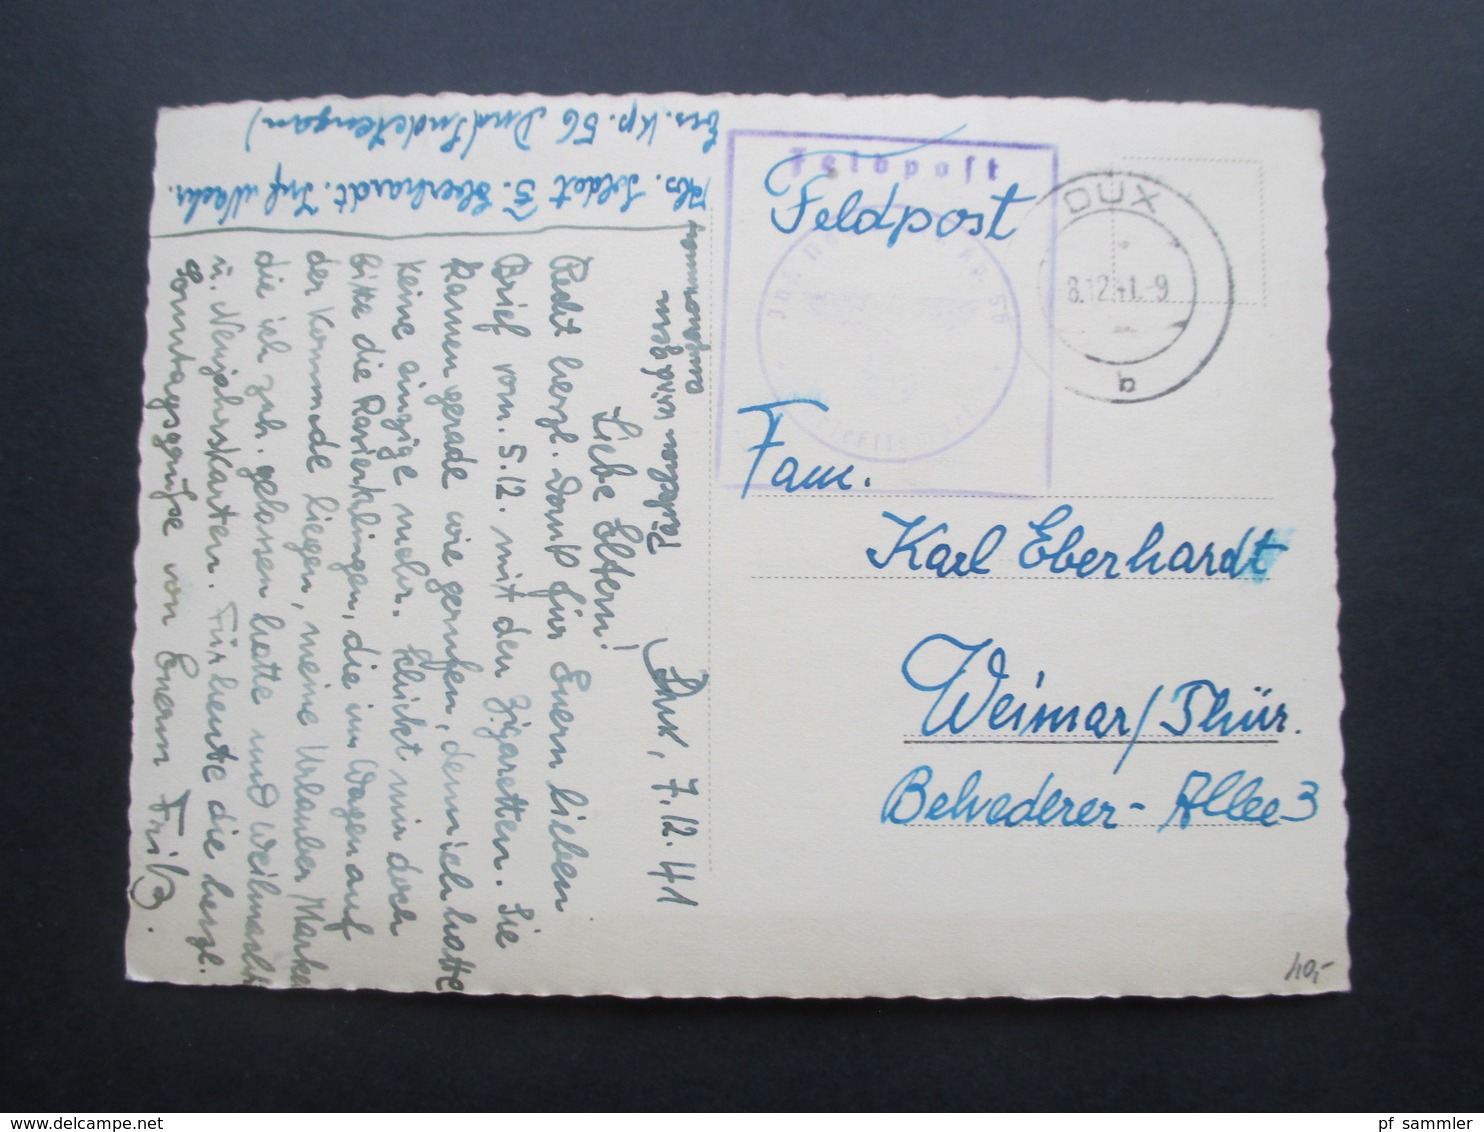 Abs. Soldat F. Eberhardt. Inf. Nachr.
Ers. Kp. 56 Dux (Sudetengau)
Dux, 7.12.41
Päckchen wird gern
angenommen
Liebe Eltern!
Recht herzl. Dank für Euern lieben
Brief vom 5.12. mit den Zigaretten. Sie
kamen gerade wie gerufen, denn ich hatte
keine einzige mehr. Schickt mir doch
bitte die Rasierklingen, die im Wagen auf
der Kommode liegen, meine Urlauber Marken
die ich zuh. gelassen hatte und Weihnachts
u. Neujahrskarten. Für heute die herzl.
Sonntagsgrüße von Euerm Fritz.
Feldpost
Feldpost
DUX
8.12.41.-9
q
Fam.
Karl Eberhardt
Weimar/Thür.
Belvederer-Allee 3
40,-
pf_sammler
www.delcampe.net